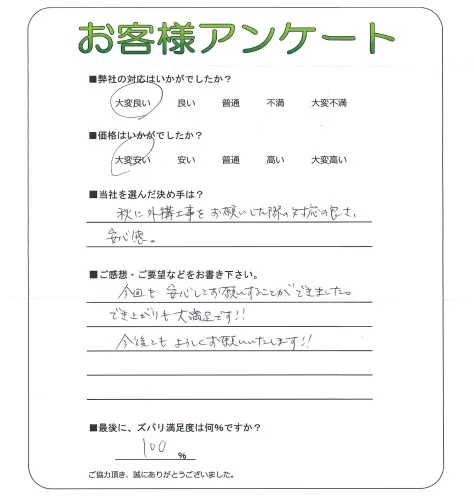 お客様アンケート
■弊社の対応はいかがでしたか？
大変良い 良い 普通 不満 大変不満
■価格はいかがでしたか？
大変安い 安い 普通 高い 大変高い
■当社を選んだ決め手は？
秋に外構工事をお願いした際の対応の良さ、
安心感。
■ご感想・ご要望などをお書き下さい。
今回も安心してお願いすることができました。
でき上がりも大満足です!!
今後ともよろしくお願いいたします!!
■最後に、ズバリ満足度は何％ですか？
100 ％
ご協力頂き、誠にありがとうございました。